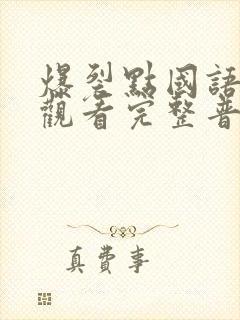 爆裂點國語
觀看完整普
真費事